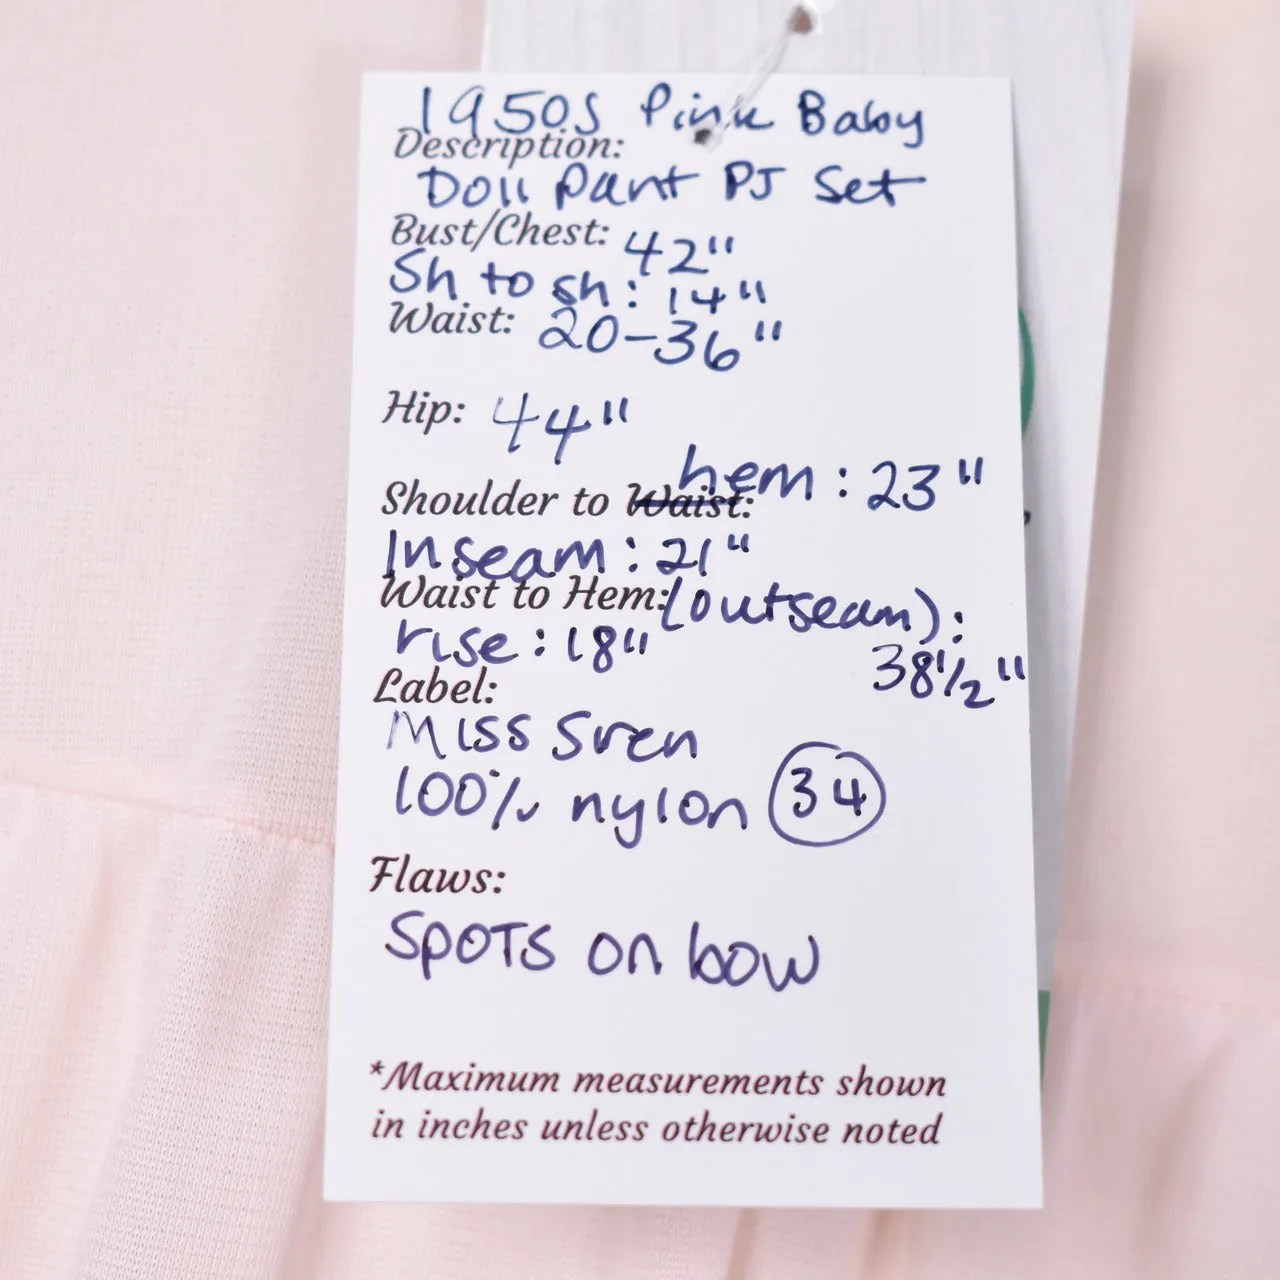 1950s Pink Baby
Description:
Doll Pant PJ Set
Bust/Chest: 42"
Sh to sh: 14"
Waist: 20-36"
Hip: 44"
Shoulder to Waist: hem: 23"
Inseam: 21"
Waist to Hem: (outseam):
rise: 18" 38½"
Label:
Miss Sren
100% nylon 34
Flaws:
Spots on bow
*Maximum measurements shown
in inches unless otherwise noted